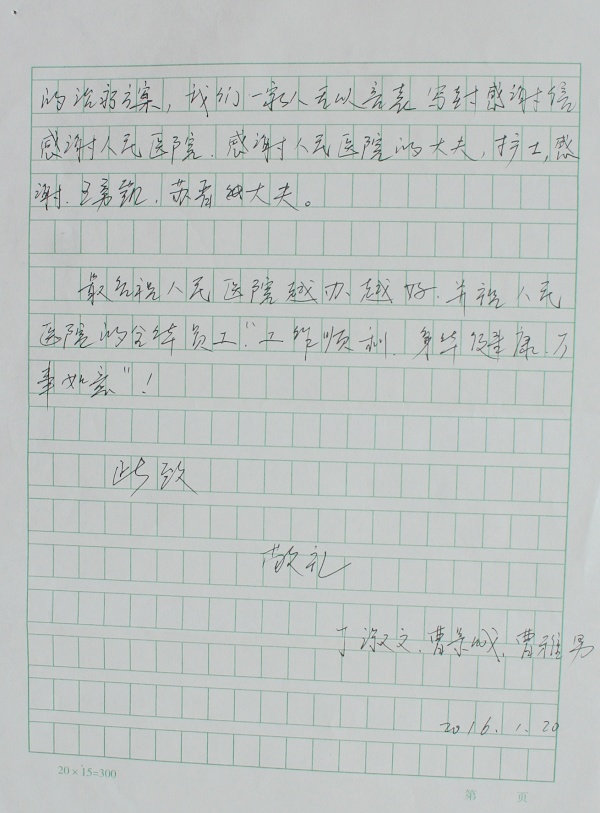 的治疗方案，我们一家人无以言表 写封感谢信
感谢人民医院. 感谢人民医院的大夫，护士，感
谢. 王勇 . 苏春 大夫。
最后祝人民医院越办越好. 并祝人民
医院的全体员工:"工作顺利. 身体健康. 万
事如意"！
此致
敬礼
丁淑文. 曹景 . 曹雅男
2016. 1. 20
20×15=300
第 页